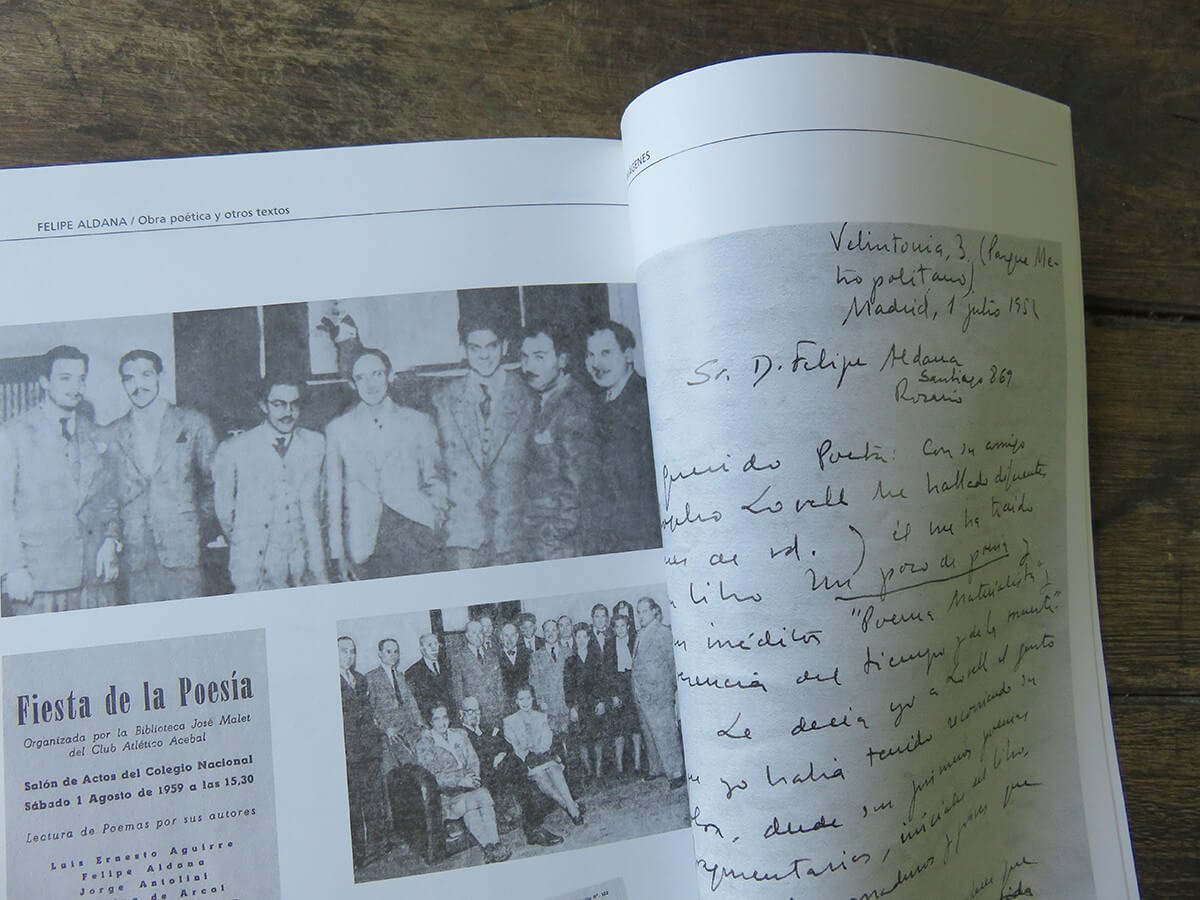 FELIPE ALDANA / Obra poética y otros textos
Fiesta de la Poesía
Organizada por la Biblioteca José Malet
del Club Atlético Acebal
Salón de Actos del Colegio Nacional
Sábado 1 Agosto de 1959 a las 15,30
Lectura de Poemas por sus autores
Luis Ernesto Aguirre
Felipe Aldana
Jorge Antolini
de Arcal
GENES
Velintonia, 3. (Parque Me-
tropolitano)
Madrid, 1 julio 195
Sr. D. Felipe Aldana
Santiago 869
Rosario
querido Poeta: Con su amigo
Lovell he hallado diferentes
es de vd. ) él me ha traido
libro Un poco de poesía y
inéditos "Poema Materialista y
rencia del tiempo y de la muerte."
Le decía yo a Lovell el gusto
que yo había tenido recorriendo su
desde sus primeros poemas
iniciales del libro,
que
que